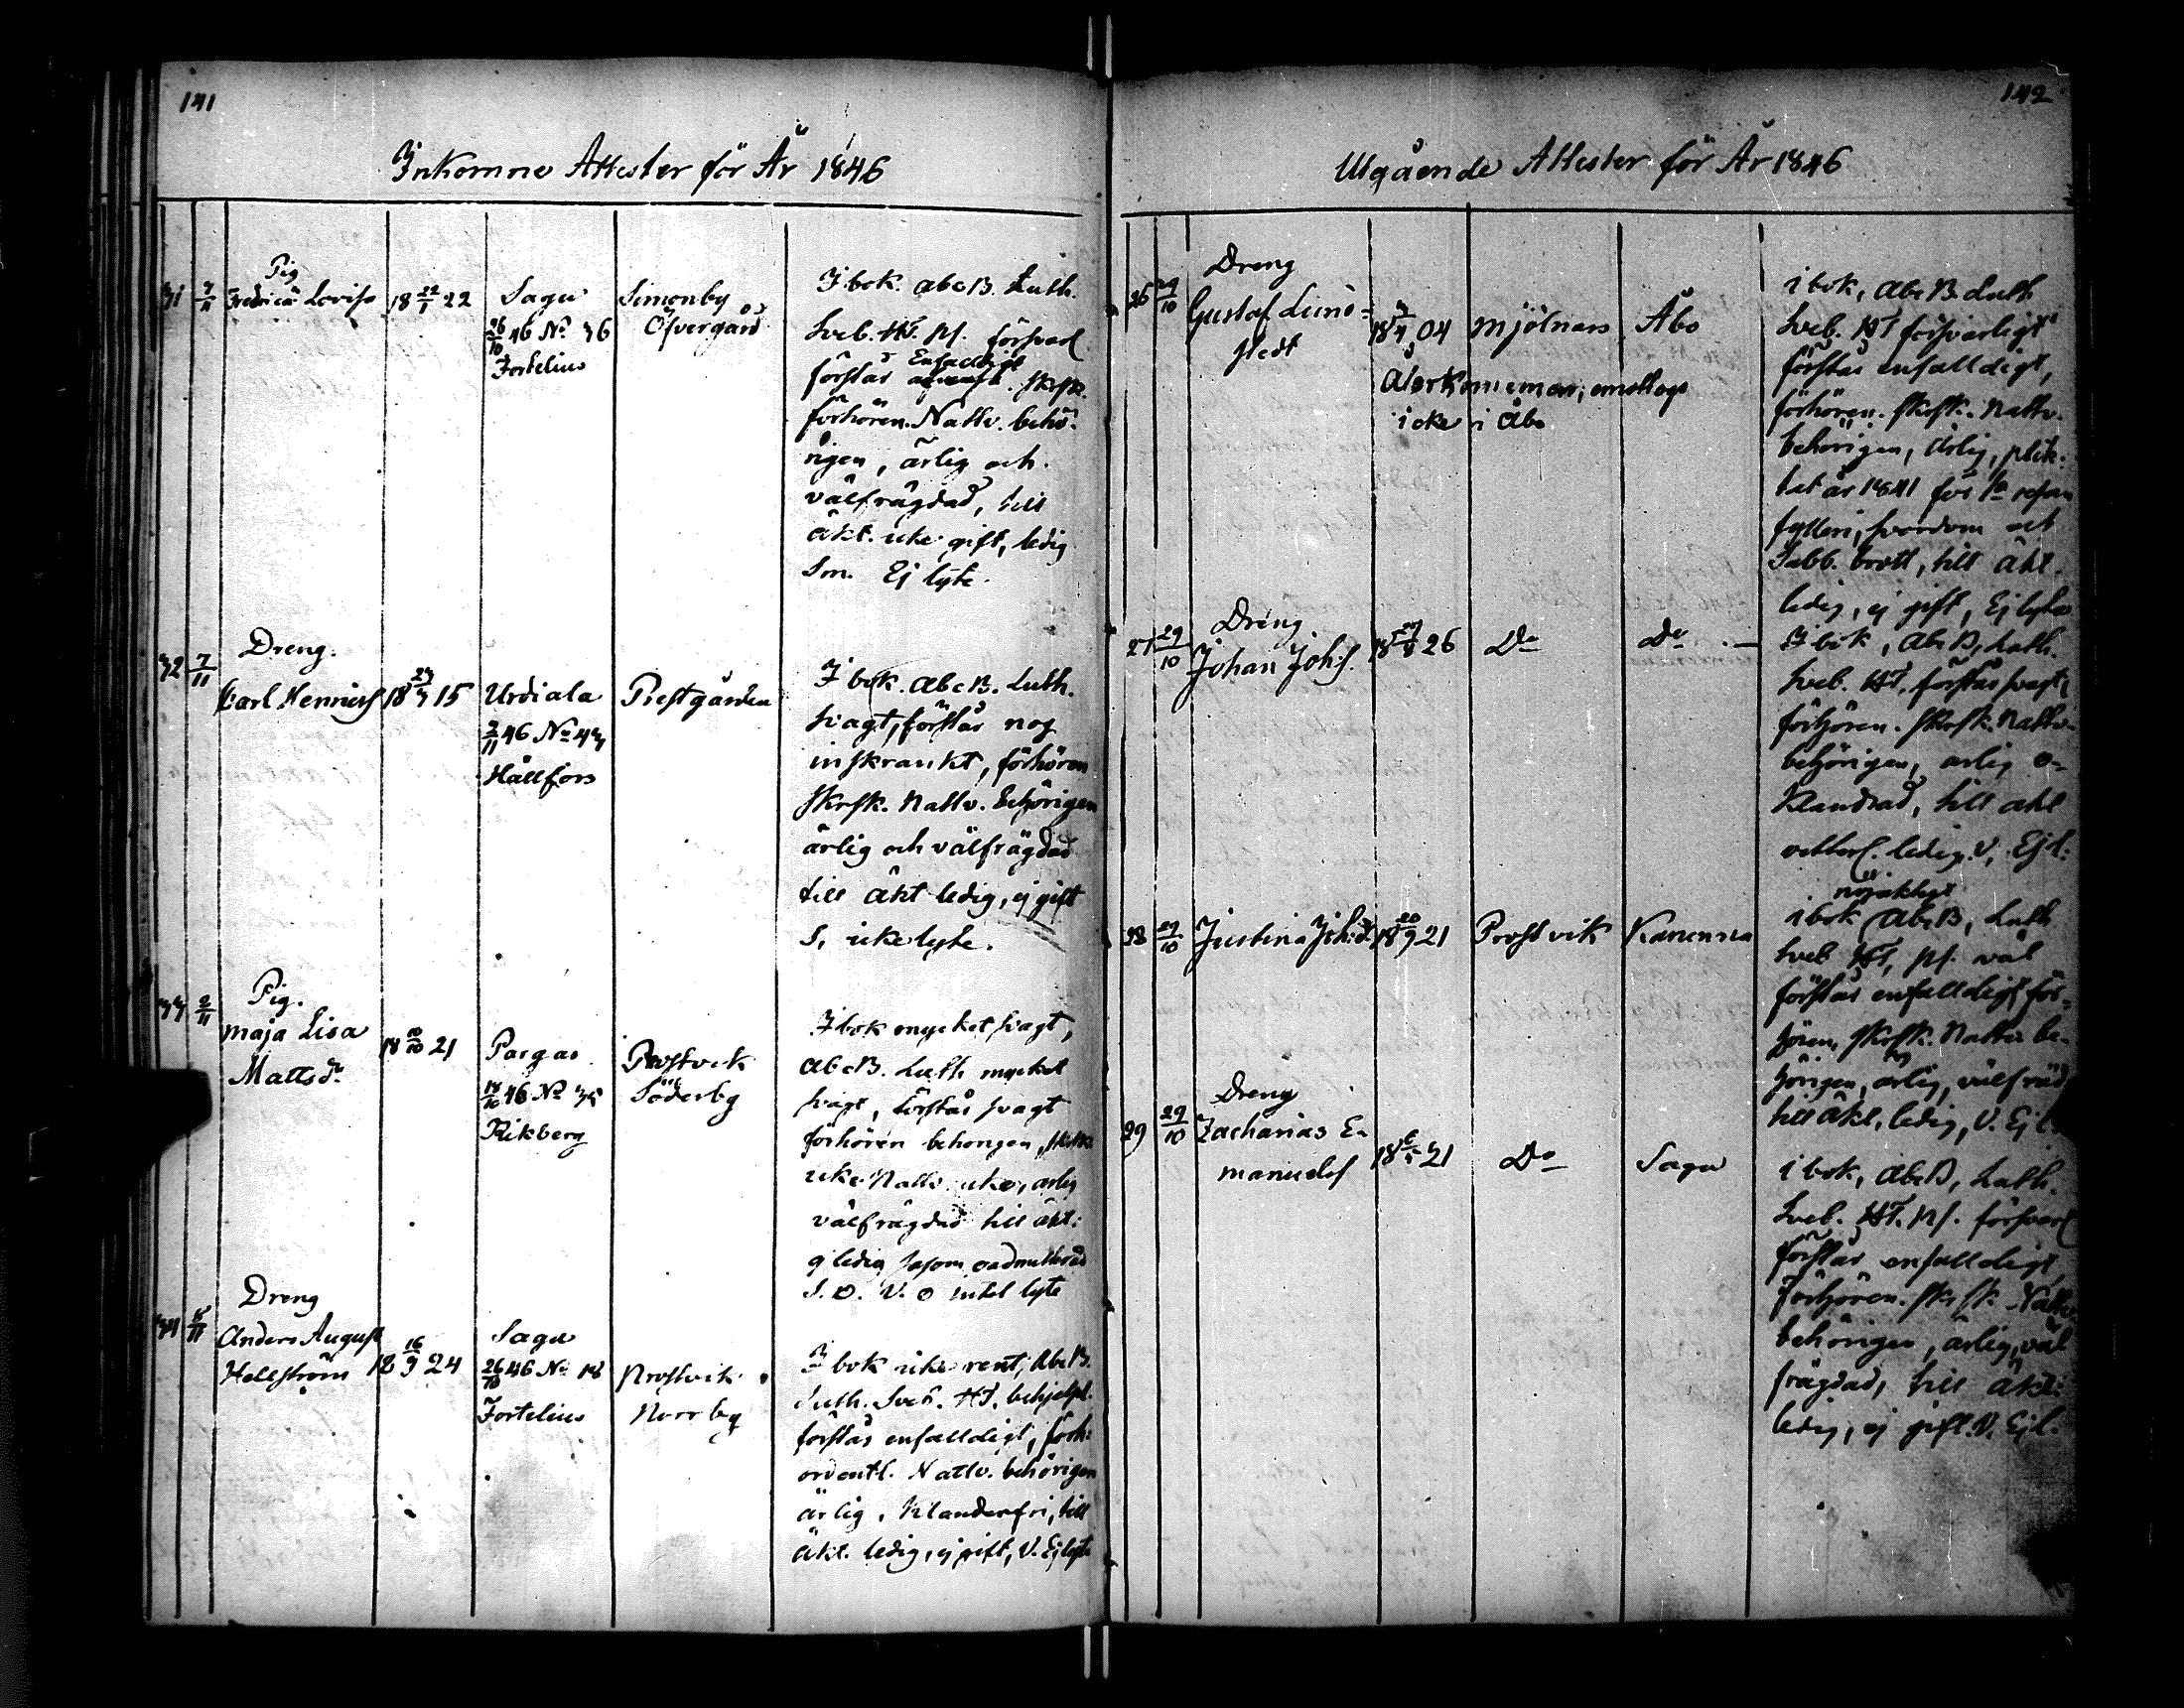 141
Inkomne Attester för År 1846
31 7/11 Pig
Fredrica Lovisa 18 22/1 22 Sagu Simonby
26/10 46 No 36 Öfvergård
Fortelius
I bok. abcB. Luth.
Sveb. HT. Ps. försvarl
förstår Enfaldigt
förhören. Nattv. behö-
rigen, ärlig och
välfrägdad, till
äkt. icke gift, ledig
Sm. Ej lyte.
32 7/11 Dreng.
Carl Henricss 18 23/3 15 Urdiala Prestgården
2/11 46 No 43
Hällfors
I bok. abcB. Luth.
svagt, förstår nog
inskränkt, förhören
skrsk. Nattv. behörigen
ärlig och välfrägdad
till äkt ledig, ej gift
S, icke lyte.
33 2/11 Pig.
Maja Lisa
Mattsdr 18 10/10 21 Pargas Prostvik
18/10 46 No 35 Söderby
Rikberg
I bok mycket svagt,
abcB. Luth mycket
svagt, förstår svagt
förhören behörigen,
icke Nattv. icke, ärlig
välfrägdad till äkt:
ledig såsom oadmitterad
S. O. V. O intet lyte
34 8/11 Dreng
Anders August
Hellström 18 16/9 24 Sagu
26/10 46 No 18 Prostvik
Fortelius Norrby
I bok icke rent, AbcB.
Luth. Sveb. HT. behjelpl.
förstår enfalldigt, förh:
ordentl. Nattv. behörigen
ärlig, klanderfri, till
äkt. ledig, ej gift, V. Ej lyte
142
Utgående Attester för År 1846
26 29/10 Dreng
Gustaf Lind-
stedt 18 3/4 04 Mjölnars Åbo
Återkommen, emottogs
icke i Åbo
i bok, AbcB Luth
Sveb. HT försvarligt
förstår enfalldigt,
förhören. skrsk. Nattv.
behörigen, ärlig, plik-
tat år 1841 för 1a resan
fylleri, svordom och
Sabb. brott, till äkt.
ledig, ej gift, Ej lyte
27 29/10 Dreng
Johan Johss. 18 27/8 26 Do Do
I bok, AbcB, Luth.
Sveb. HT, förstår svagt,
förhören. skrsk. Nattv
behörigen, ärlig o-
klandrad, till äkt
ledig. V. Ej l:
28 29/10 Justina Johsd. 18 20/9 21 Prostvik Karuna
nöjaktigt
i bok AbcB, Luth
Sveb HT, Ps. väl
förstår enfalldigt, för-
hören, skrsk. Nattv be-
hörigen, ärlig, välfräd
till äkt, ledig, V. Ej l.
29 29/10 Dreng
Zacharias E-
manuelss 18 6/5 21 Do Sagu
i bok, AbcB, Luth.
Sveb. HT. Ps. försvarl
förstår enfalldigt,
förhören. skrsk Nattv
behörigen, ärlig, väl
frägdad, till äkt:
ledig, ej gift. V. Ej l.